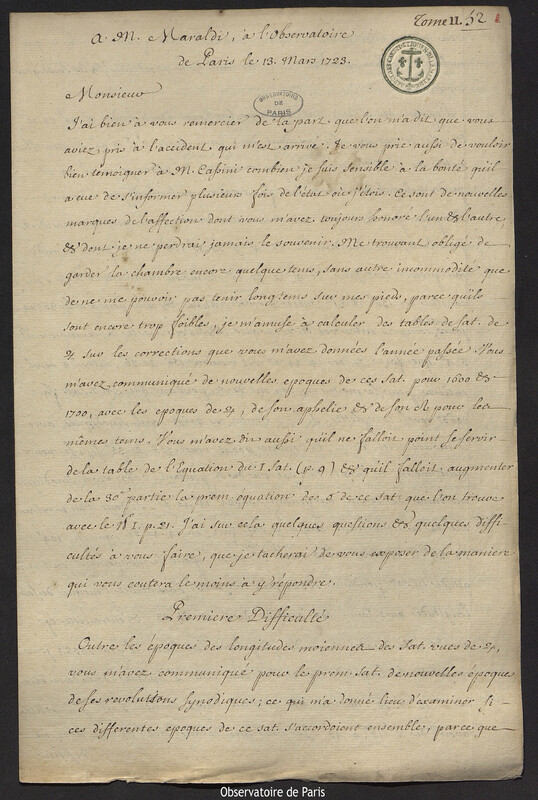 Tome II. 52
A M. Maraldi, à l'Observatoire
de Paris le 13. Mars 1723.
OBSERVATOIRE
DE
PARIS
Monsieur
J'ai bien à vous remercier de la part que l'on m'a dit que vous
aviez pris à l'accident qui m'est arrivé. Je vous prie aussi de vouloir
bien temoigner à M. Cassini combien je suis sensible à la bonté qu'il
a eue de s'informer plusieurs fois de l'état où j'étois. Ce sont de nouvelles
marques de l'affection dont vous m'avez toujours honoré l'un & l'autre,
& dont je ne perdrai jamais le souvenir. Me trouvant obligé de
garder la chambre encore quelque tems, sans autre incommodité que
de ne me pouvoir pas tenir longtems sur mes pieds, parce qu'ils
sont encore trop foibles, je m'amuse à calculer des tables de sat. de
♃ sur les corrections que vous m'avez données l'année passée. Vous
m'avez communiqué de nouvelles epoques de ces sat. pour 1600 &
1700, avec les epoques de ♃, de son aphelie & de son ☊ pour les
mêmes tems. Vous m'avez dit aussi qu'il ne falloit point se servir
de la table de l'Equation du I sat. (p. 9) & qu'il falloit augmenter
de la 30e partie la prem. equation des ☌ de ce sat. que l'on trouve
avec le N I. p. 21. J'ai sur cela quelques questions & quelques diffi-
cultés à vous faire, que je tacherai de vous exposer de la maniere
qui vous coutera le moins à y répondre.
Premiere Difficulté
Outre les époques des longitudes moiennes des sat. vues de ♃,
vous m'avez communiqué pour le prem. sat. de nouvelles époques
de ses revolutions synodiques; ce qui m'a donné lieu d'examiner si
ces differentes epoques de ce sat. s'accordoient ensemble, parce que
Observatoire de Paris